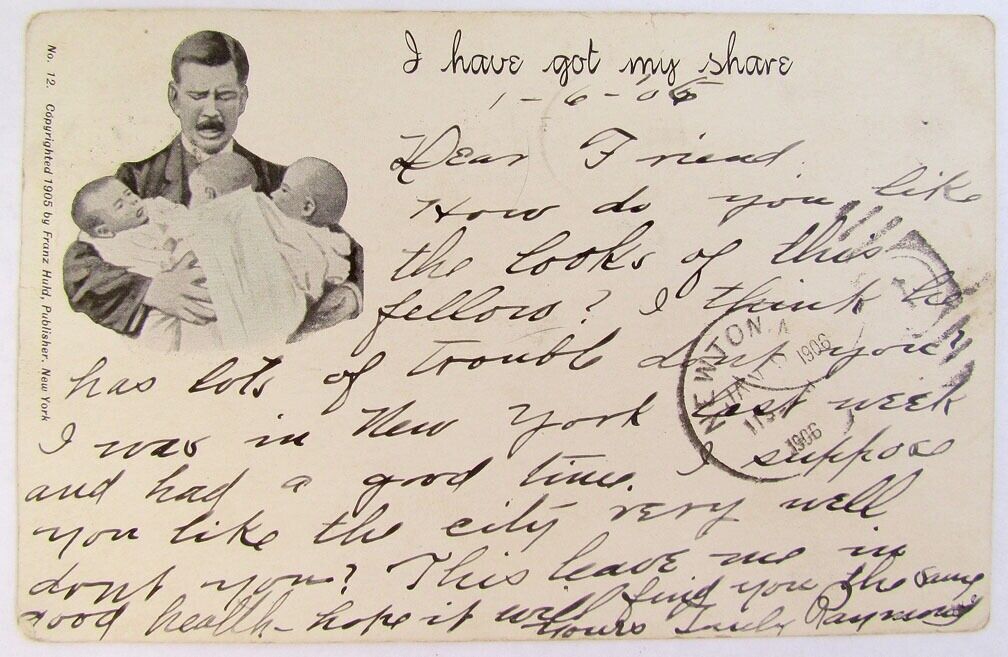 I have got my share
1-6-06
Dear Friend.
How do you like
the looks of this
fellow? I think he
has lots of trouble dont you?
I was in New York last week
and had a good time. I suppose
you like the city very well
dont you? This leave me in
good health - hope it will find you the same
Yours Truly Raymond
No. 12. Copyrighted 1905 by Franz Huld, Publisher, New York
NEWTON
JAN
1906
1906